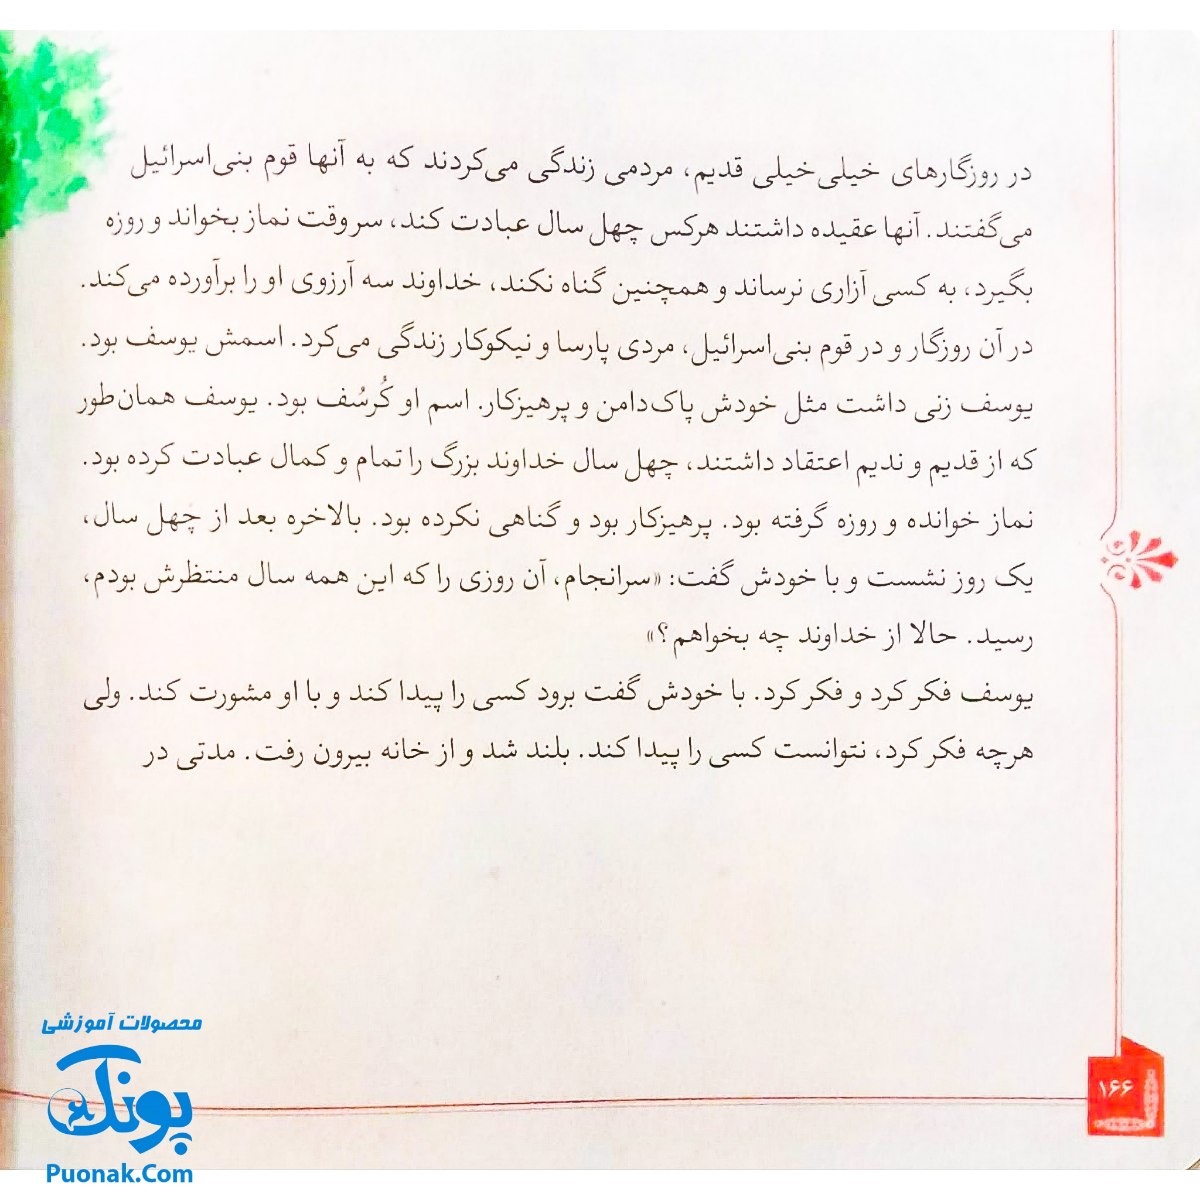 در روزگارهای خیلی‌خیلی قدیم، مردمی زندگی می‌کردند که به آنها قوم بنی‌اسرائیل
می‌گفتند. آنها عقیده داشتند هرکس چهل سال عبادت کند، سر وقت نماز بخواند و روزه
بگیرد، به کسی آزاری نرساند و همچنین گناه نکند، خداوند سه آرزوی او را برآورده می‌کند.
در آن روزگار و در قوم بنی‌اسرائیل، مردی پارسا و نیکوکار زندگی می‌کرد. اسمش یوسف بود.
یوسف زنی داشت مثل خودش پاک‌دامن و پرهیزکار. اسم او کُرسُف بود. یوسف همان‌طور
که از قدیم و ندیم اعتقاد داشتند، چهل سال خداوند بزرگ را تمام و کمال عبادت کرده بود.
نماز خوانده و روزه گرفته بود. پرهیزکار بود و گناهی نکرده بود. بالاخره بعد از چهل سال،
یک روز نشست و با خودش گفت: «سرانجام، آن روزی را که این همه سال منتظرش بودم،
رسید. حالا از خداوند چه بخواهم؟»
یوسف فکر کرد و فکر کرد. با خودش گفت برود کسی را پیدا کند و با او مشورت کند. ولی
هرچه فکر کرد، نتوانست کسی را پیدا کند. بلند شد و از خانه بیرون رفت. مدتی در
۱۶۶
محصولات آموزشی
پونک
Puonak.Com